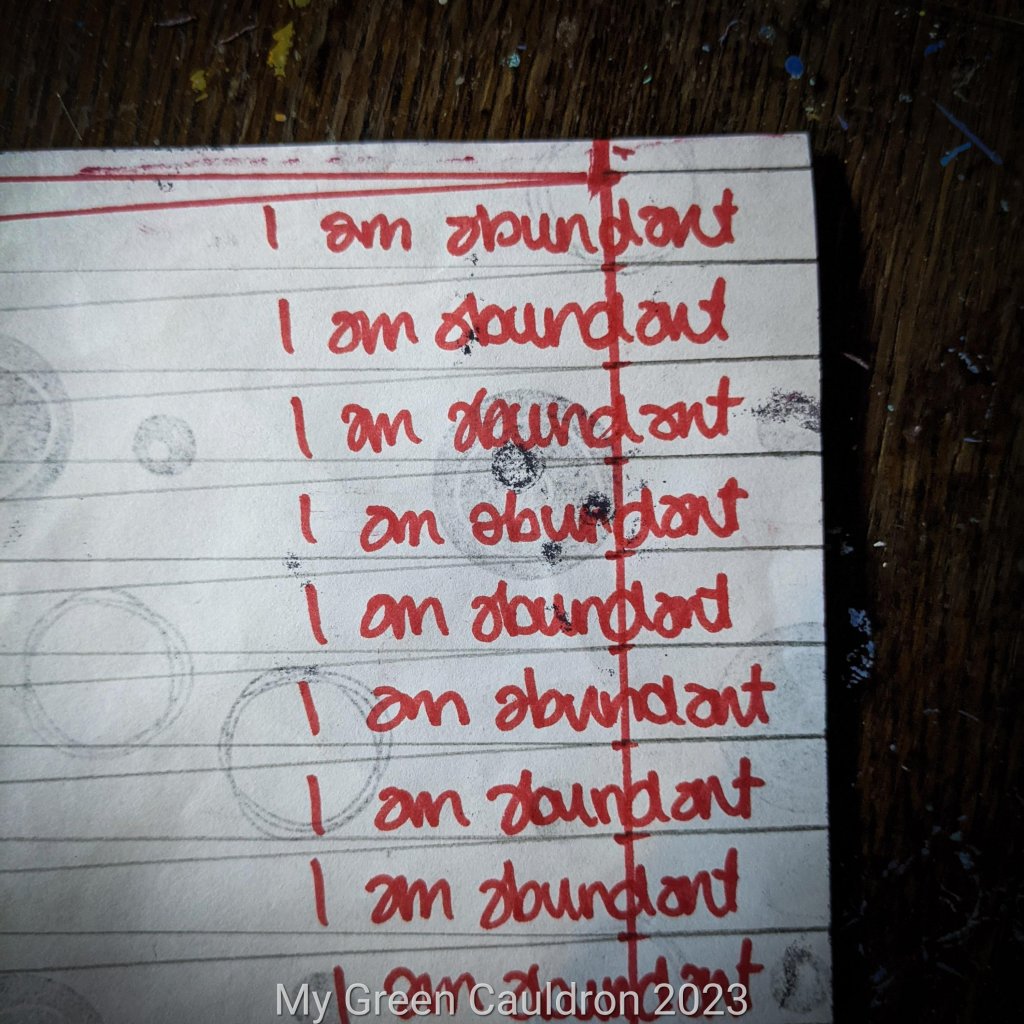 I am abundant
I am abundant
I am abundant
I am abundant
I am abundant
I am abundant
I am abundant
I am abundant
I am abundant
My Green Cauldron 2023